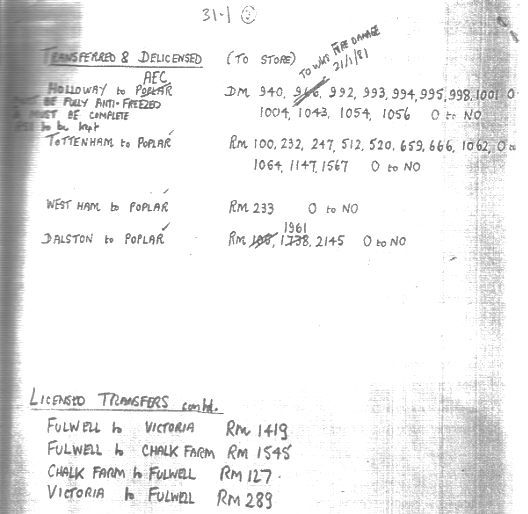 31-1 ③
TRANSFERRED & DELICENSED (TO STORE) TO WKS FIRE DAMAGE 21/1/81
AEC
HOLLOWAY to POPLAR DM 940, 966, 992, 993, 994, 995, 998, 1001 O
MUST BE FULLY ANTI-FREEZED 1004, 1043, 1054, 1056 O to NO
& MUST BE COMPLETE
to be kept
TOTTENHAM to POPLAR RM 100, 232, 247, 512, 520, 659, 666, 1062, O to
1064, 1147, 1567 O to NO
WEST HAM to POPLAR RM 233 O to NO
1961
DALSTON to POPLAR RM 108, 1738, 2145 O to NO
LICENSED TRANSFERS contd.
FULWELL to VICTORIA RM 1419
FULWELL to CHALK FARM RM 1545
CHALK FARM to FULWELL RM 127.
VICTORIA to FULWELL RM 289